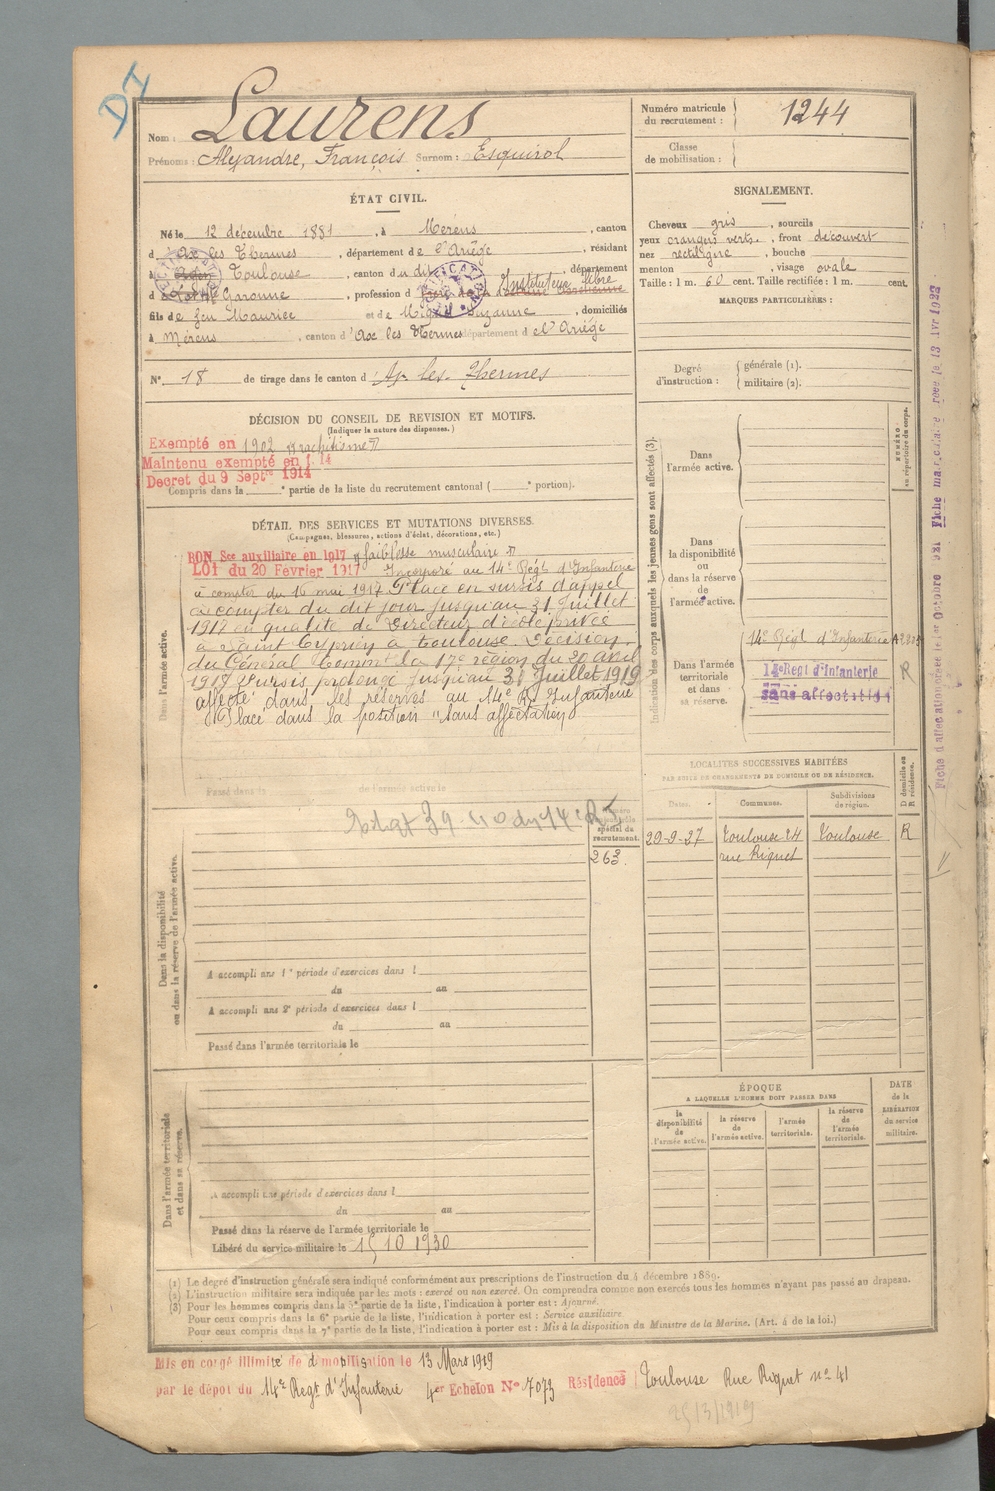 DI
Nom : Laurens
Prénoms : Alexandre, François Surnom : Esquirol
Numéro matricule du recrutement : 1244
Classe de mobilisation :
ÉTAT CIVIL.
Né le 12 décembre 1881, à Mérens, canton
d'Ax les Thermes, département de l'Ariège, résidant
à Toulouse, canton du dit, département
d Garonne, profession d Instituteur libre
fils de feu Maurice et de Suzanne, domiciliés
à Mérens, canton d'Ax les Thermes département de l'Ariège
N° 18 de tirage dans le canton d'Ax-les-Thermes
SIGNALEMENT.
Cheveux gris, sourcils
yeux orangers verts., front découvert
nez rectiligne, bouche
menton, visage ovale
Taille : 1 m. 60 cent. Taille rectifiée : 1 m. cent.
MARQUES PARTICULIÈRES :
Degré d'instruction :
générale (1).
militaire (2).
DÉCISION DU CONSEIL DE REVISION ET MOTIFS.
(Indiquer la nature des dispenses.)
Exempté en 1902 « rachitisme »
Maintenu exempté en 1.14
Decret du 9 Septre 1914
Compris dans la e partie de la liste du recrutement cantonal ( e portion).
DÉTAIL DES SERVICES ET MUTATIONS DIVERSES.
(Campagnes, blessures, actions d'éclat, décorations, etc.)
BON Sce auxiliaire en 1917 « faiblesse musculaire »
LOI du 20 Février 1917 Incorporé au 14e Régt d'Infanterie
à compter du 16 mai 1917. Placé en sursis d'appel
à compter du dit jour jusqu'au 31 Juillet
1917 en qualité de Directeur d'école privée
à Saint Cyprien à Toulouse. Décision
du Général Commt la 17e région du 20 avril
1917. Sursis prolongé jusqu'au 31 Juillet 1919
affecté dans les réserves au 14e Rgt Infanterie
Placé dans la position "sans affectation"
Dans l'armée active.
Passé dans la de l'armée active le
Indication des corps auxquels les jeunes gens sont affectés (3).
NUMÉRO au répertoire du corps.
Dans l'armée active.
Dans la disponibilité ou dans la réserve de l'armée active.
Dans l'armée territoriale et dans sa réserve.
14e Régt d'Infanterie
14e Regt d'Infanterie R
sans affectation
LOCALITÉS SUCCESSIVES HABITÉES
PAR SUITE DE CHANGEMENTS DE DOMICILE OU DE RÉSIDENCE.
Dates.
Communes.
Subdivisions de région.
D domicile ou R résidence.
29-9-27 Toulouse 24 rue Riquet Toulouse R
spécial du recrutement.
263.
Dans la disponibilité ou dans la réserve de l'armée active.
A accompli une 1re période d'exercices dans l
du au
A accompli une 2e période d'exercices dans l
du au
Passé dans l'armée territoriale le
Dans l'armée territoriale et dans sa réserve.
A accompli une période d'exercices dans l
du au
Passé dans la réserve de l'armée territoriale le
Libéré du service militaire le 15 10 1930
ÉPOQUE
A LAQUELLE L'HOMME DOIT PASSER DANS
la disponibilité de l'armée active.
la réserve de l'armée active.
l'armée territoriale.
la réserve de l'armée territoriale.
DATE de la LIBÉRATION du service militaire.
(1) Le degré d'instruction générale sera indiqué conformément aux prescriptions de l'instruction du 4 décembre 1889.
(2) L'instruction militaire sera indiquée par les mots : exercé ou non exercé. On comprendra comme non exercés tous les hommes n'ayant pas passé au drapeau.
(3) Pour les hommes compris dans la 5e partie de la liste, l'indication à porter est : Ajourné.
Pour ceux compris dans la 6e partie de la liste, l'indication à porter est : Service auxiliaire.
Pour ceux compris dans la 7e partie de la liste, l'indication à porter est : Mis à la disposition du Ministre de la Marine. (Art. 4 de la loi.)
Mis en congé illimité de démobilisation le 13 Mars 1919
par le dépôt du 14e Regt d'Infanterie 4er Echelon N° 7073 Résidence Toulouse Rue Riquet n° 41
25/3/1919